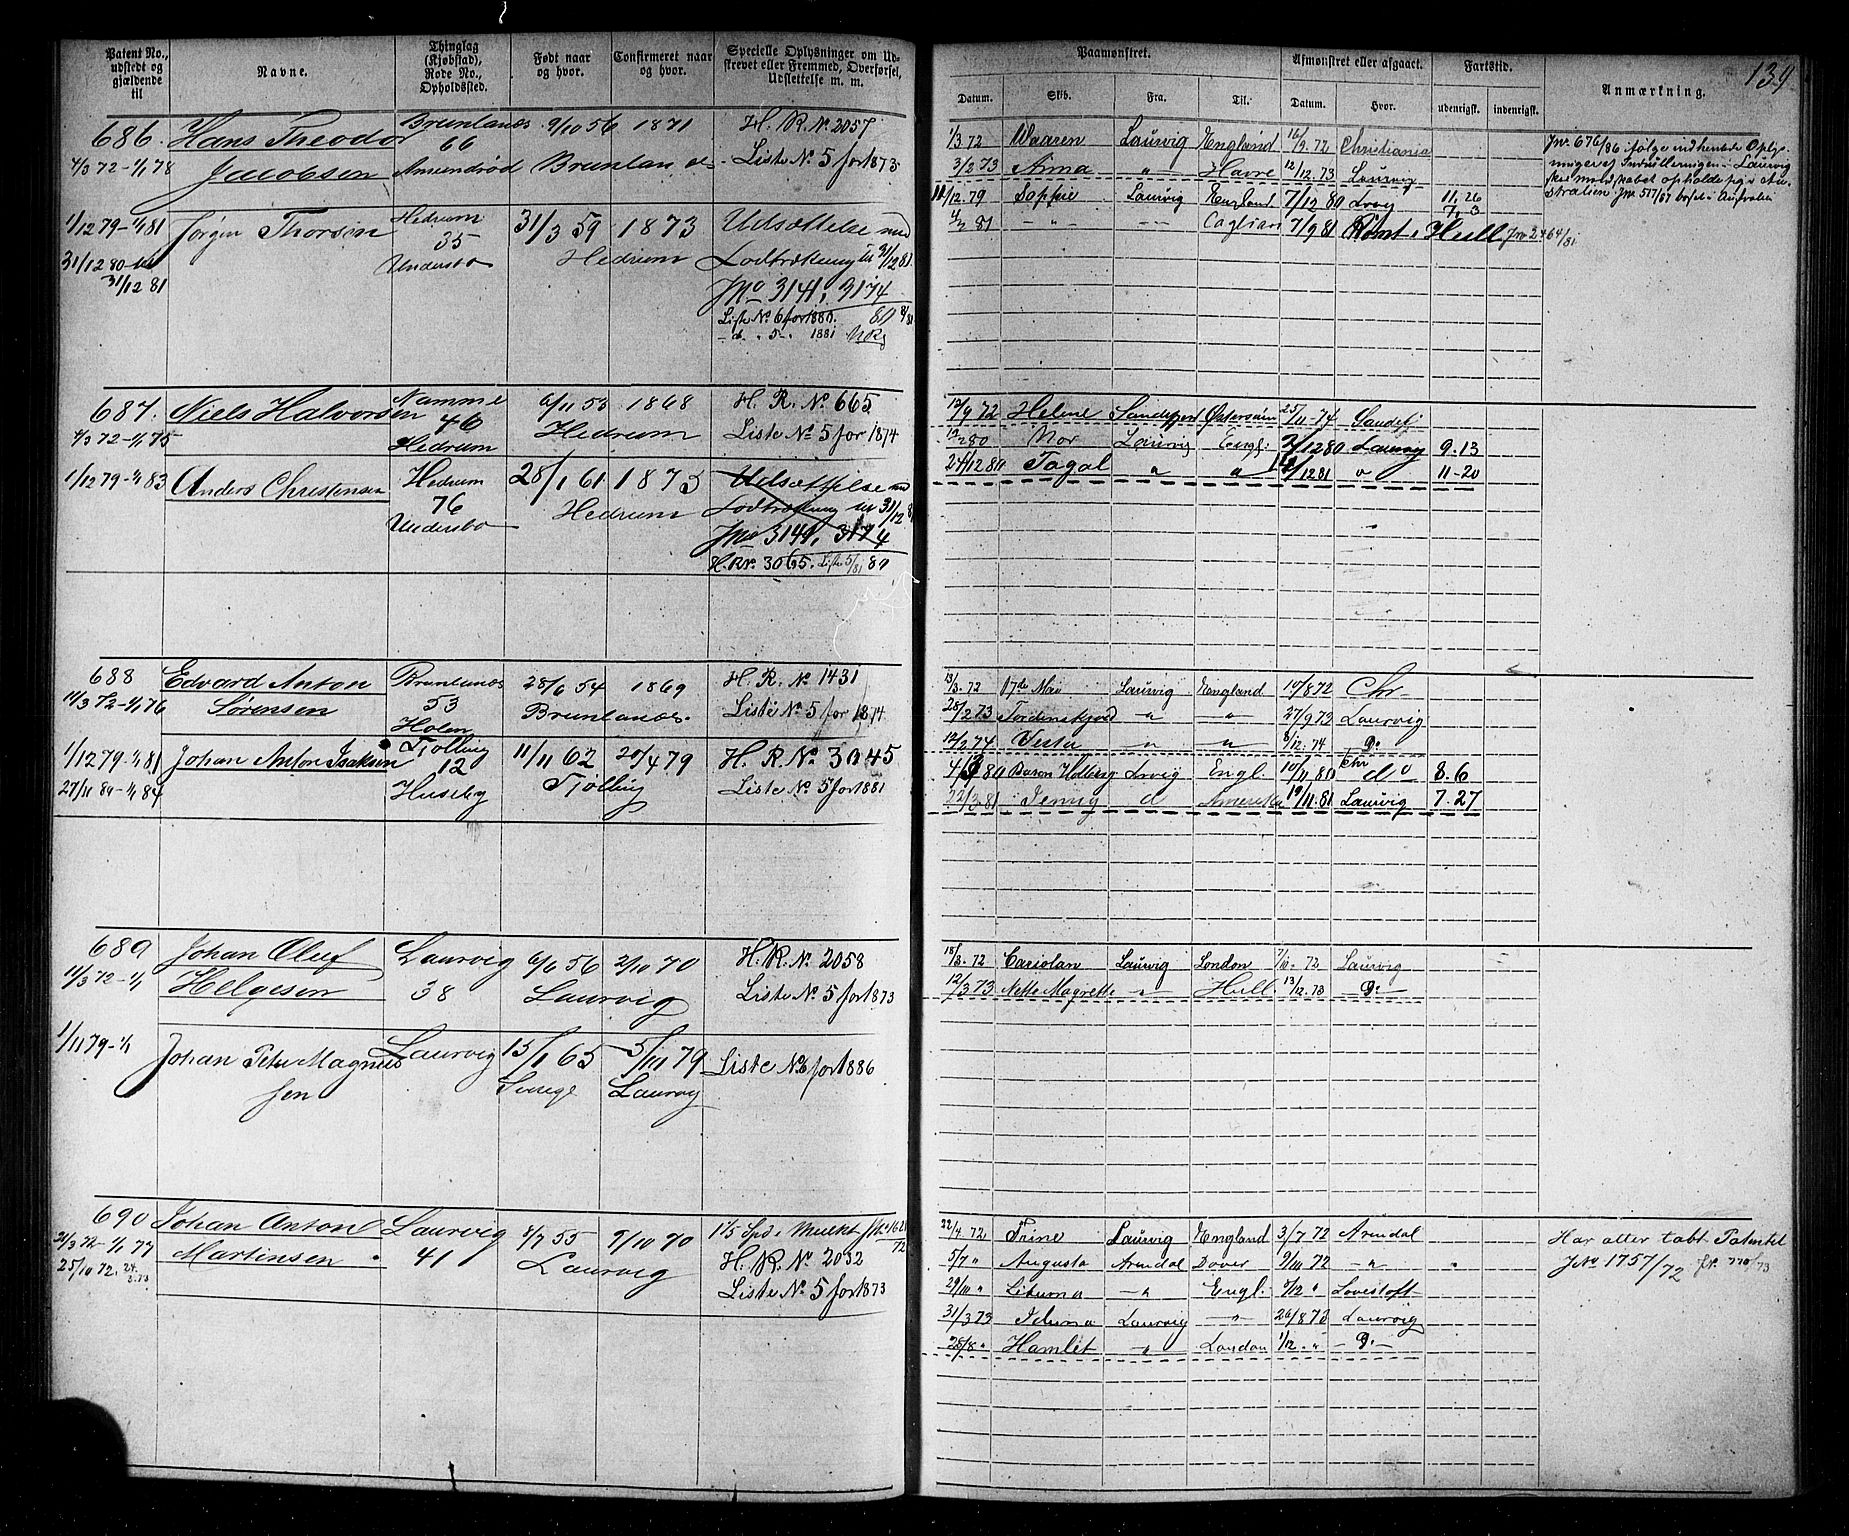 Patent No., udstedt og gjældende til
Navne.
Thinglag (Kjøbstad), Rode No., Opholdssted.
Født naar og hvor.
Confirmeret naar og hvor.
Specielle Oplysninger om Udskrevet eller Fremmed, Overførsel, Udslettelse m. m.
Paamønstret.
Datum.
Skib.
Fra.
Til.
Afmønstret eller afgaaet.
Datum.
Hvor.
Fartstid.
udenrigsk.
indenrigsk.
Anmærkning.
139
686. Hans Theodor Brunlanes 9/10 56 1871 H. R. No 2057
66
4/3 72-1/1 78 Jacobsen Amundrød Brunlanes Liste No 5 for 1873
1/12 79-1/1 81 Jørgen Thorsen Hedrum 31/3 59 1873 Udsættelse med
35
31/12 80- Undersbo Hedrum Lodtrækning til 31/12 81.
31/12 81
Jno 3141, 3174
Liste No 6 for 1880. 80
- d. - 5 - 1881
1/3 72 Waaren Laurvig England 16/9 72 Christiania
3/2 73 Anna " Havre 12/12 73 Laurvig
11/12 79 Sophie Laurvig England 7/12 80 Lrvig 11. 26
7. 3
4/3 81 - " - Cagliari 7/9 81 Rømt i Hull Jno 2464/81
Jno 676/86 ifølge indhentede Oplysninger ef Indrulleringen i Laurvig
skal mandskabet opholde sig i Australien. Jno 517/87 bosat i Australien
687. Niels Halvorsen Namme 6/11 53 1868 H. R. No 665
46
4/3 72-1/1 75 Hedrum Hedrum Liste No 5 for 1874
1/12 79-1/1 83 Anders Christensen Hedrum 28/1 61 1873 Udsættelse med
76
Undersbo Hedrum Lodtrækning til 31/12 81
Jno 3141, 3174
H. R. No. 3065. Liste 5/81 80
12/9 72 Helene Sandefjord Østersøen 25/11 74 Sandefj
80 Nor Laurvig Engl. 2/12 80 Laurvig 9.13
24/12 80 Tagal " " 12 81 " 11-20
688 Edvard Anton Brunlanes 28/6 54 1869 H. R. No 1431
53
11/3 72-1/1 76 Sørensen Holen Brunlanes. Liste No 5 for 1874
1/12 79-1/1 81 Johan Anton Isaksen Tjølling 11/11 62 20/4 79 H. R. No 3045
12
27/11 80-1/1 84 Huseby Tjølling Liste No 5 for 1881
13/3. 72 17de Mai Laurvig England 10/8 72 Chr
28/2 73 Tordenskjold " " 27/9 73 Laurvig
12/2 74 Vesta " " 8/12. 74 Do
80 Baron Holberg Lrvig Engl. 10/11. 80 Chr do 8.6
22/3. 81 Jenny d Amerika 19/11. 81 Laurvig 7.27
689 Johan Oluf Laurvig 6/6 56 2/10 70 H. R. No 2058
11/3 72-1/1 Helgesen 38 Laurvig Liste No 5 for 1873
1/11 79-1/1 Johan Peter Magnussen Laurvig 15/1 65 5/10 79 Liste No 6 for 1886
Sverige Laurvig
18/3. 72 Cariolan Laurvig London 7/10. 72 Laurvig
12/3 73 Nette Magrette " Hull 13/12. 73 Do
690 Johan Anton Laurvig 4/7 55 9/10 70 1 1/5 Spd i Mulkt Jno 1621/72
21/3 72-1/1 77 Martinsen 41 Laurvig H. R. No 2032
25/10 72. 24/3.73
Liste No 5 for 1873
22/4 72 Trine Laurvig England 3/7 72 Arendal
5/7 " Augusta Arendal Dover 9/10 72 - " -
29/10 " Liturna - " Engl. 9/12 " Lovestoft
31/3 73 Iduna Laurvig - " - 26/8 73 Laurvig
28/8 " Hamlet - " - London 1/12. " - Do -
Har atter tabt Patentet
Jno 1757/72 Jno. 770/73